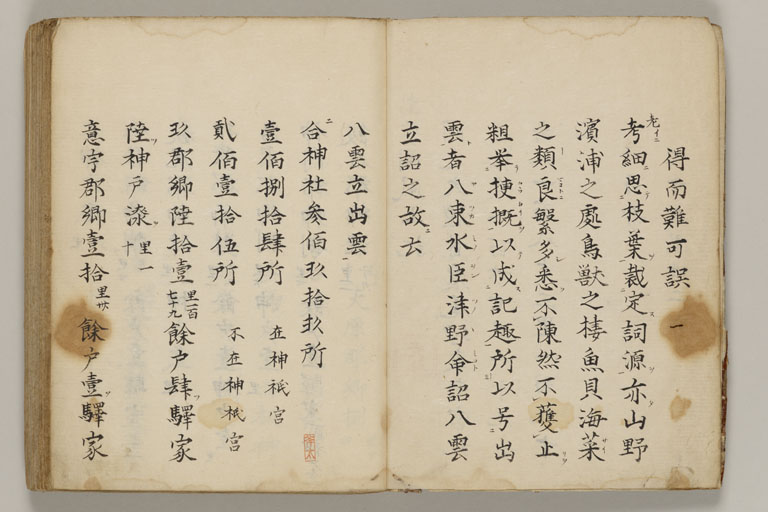 得而難可誤
考細思枝葉裁定詞源亦山野
濱浦之處鳥獸之棲魚貝海菜
之類良繁多悉不陳然不獲止
粗挙梗概以成記趣所以号出
雲者八束水臣津野命詔八雲
立詔之故云
八雲立出雲
合神社参佰玖拾玖所
壹佰捌拾肆所 在神祇宮
貳佰壹拾伍所 不在神祇宮
玖郡郷陸拾壹 里一百七十九 餘戸肆驛家
陸神戸漆 里一十
意宇郡郷壹拾 里卅 餘戸壹驛家